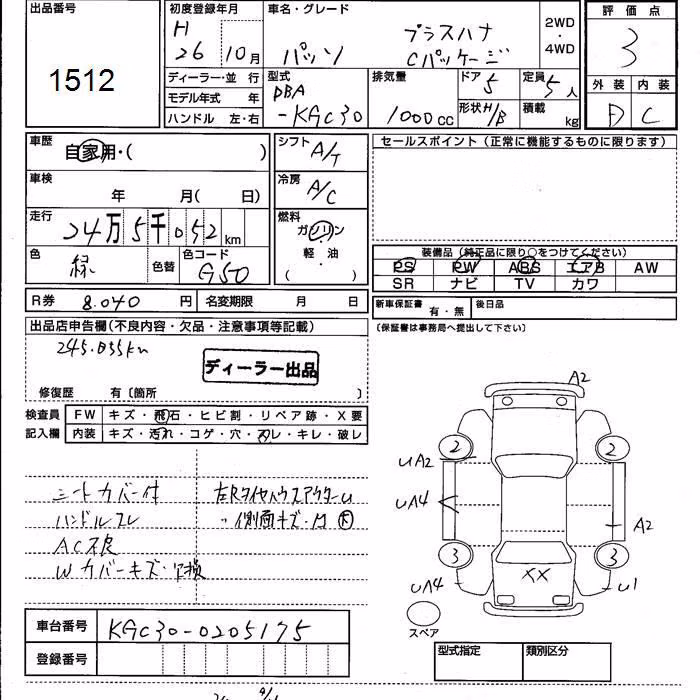 出品番号 初度登録年月 車名・グレード 2WD・4WD 評価点
1512 H 26年 10月 パッソ プラスハナ Cパッケージ 3
ディーラー・並行 型式 排気量 ドア 5 定員 5人 外装 内装
モデル年式 年 DBA
ハンドル 左・右 -KGC30 1000cc 形状 H/B 積載 kg D C
車歴 自家用・( ) シフト A/T セールスポイント（正常に機能するものに限ります）
車検 年 月( 日) 冷房 A/C
走行 24万5千052km 燃料 ガソリン・軽・油 ( )
色 緑 色替 色コード G50 装備品（純正品に限り○をつけてください）
PS PW ABS エアB AW
SR ナビ TV カワ
R券 8.040円 名変期限 月 日 新車保証書 有・無 後日品
出品店申告欄(不良内容・欠品・注意事項等記載) （保証書は事務局へ提出して下さい）
245.055km
ディーラー出品
修復歴 有〔箇所 〕
検査員 FW キズ・飛石・ヒビ割・リペア跡・X要
記入欄 内装 キズ・汚れ・コゲ・穴・スレ・キレ・破レ
シートカバー付
ハンドルスレ
AC不良
Wカバーキズ・
左Rタイヤハウスアウター
〃 側面キズ・凹 大
A2
2 2
UA2
UA4 A2
3 3
XX
UA4 U1
スペア
車台番号 KGC30-0205175
登録番号 型式指定 類別区分